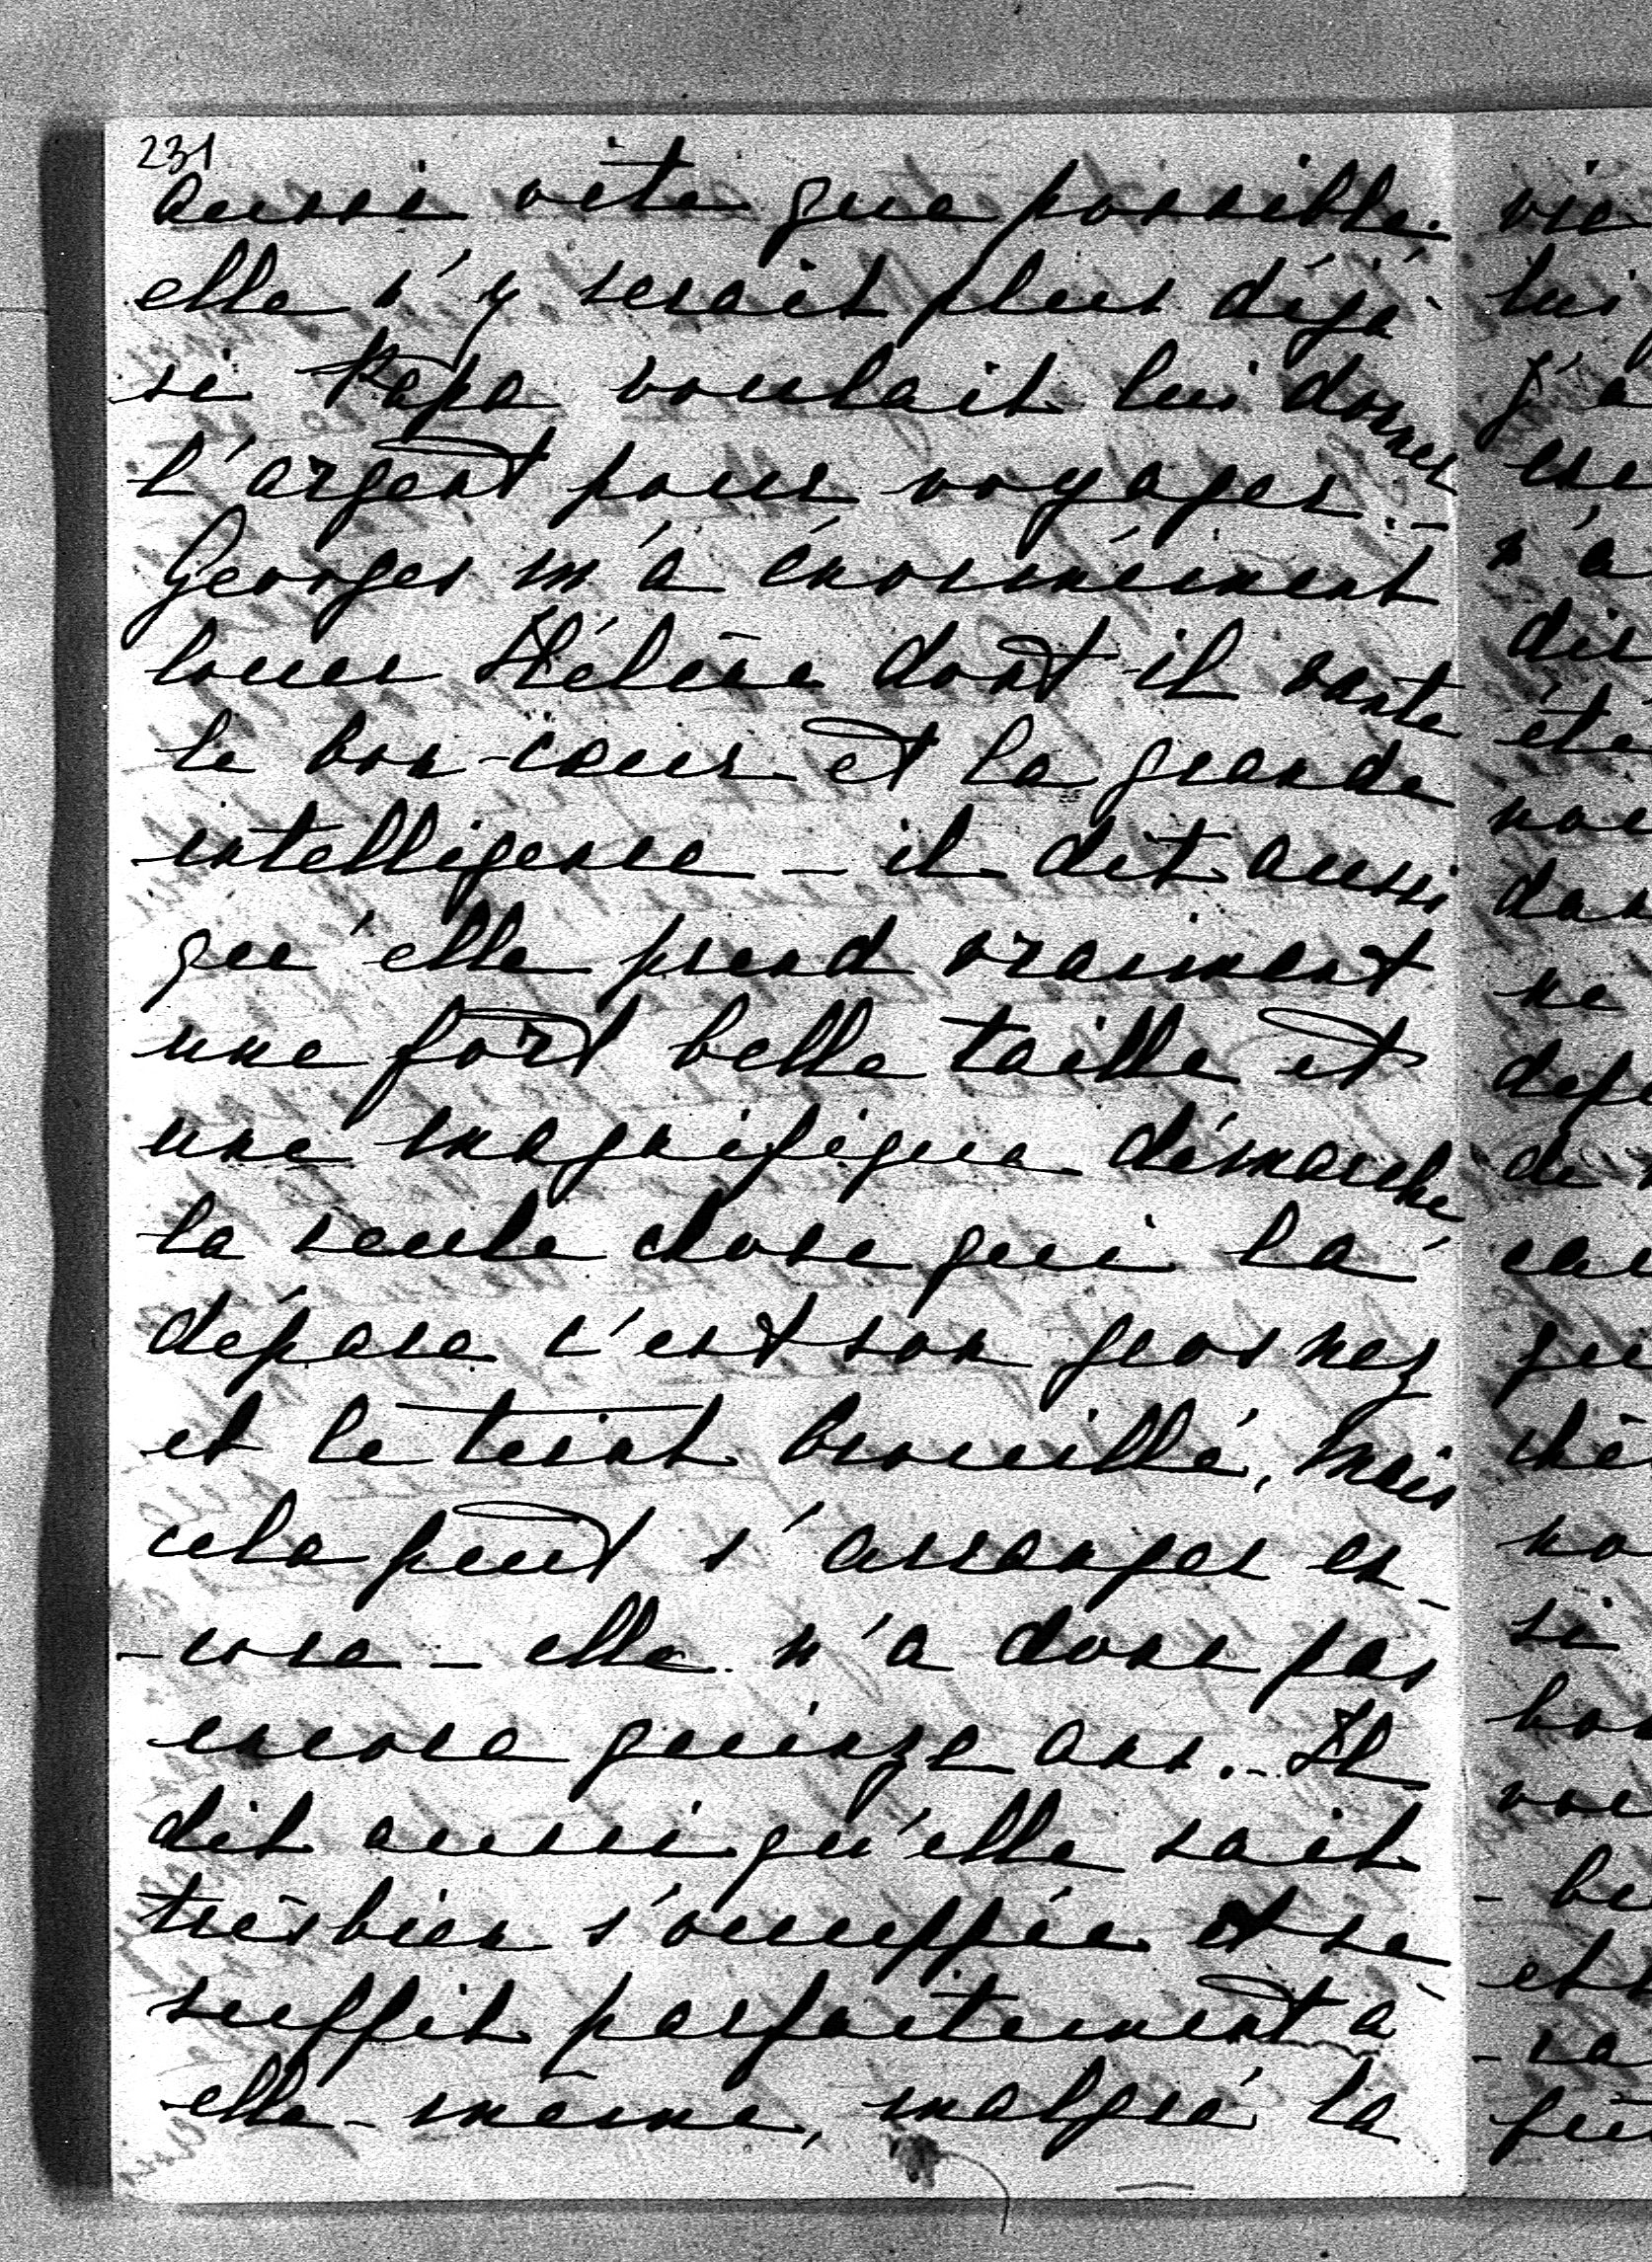 231
aussi vite que possible.
elle s'y serait plus déjà
si Papa voulait lui donner
l'argent pour voyager.–
Georges m'a énormément
louer Hélène dont il vante
le bon-cœur et la grande
intelligence – il dit aussi
qu'elle prend vraiment
une fort belle taille et
une magnifique démarche
la seule chose qui la
dépare c'est son gros nez
et le teint brouillé, mais
cela peut s'arranger en-
-core – elle n'a donc pas
encore quinze ans.– Il
dit aussi qu'elle sait
très bien s'occuppée et se
suffit parfaitement à
elle-même, malgré la